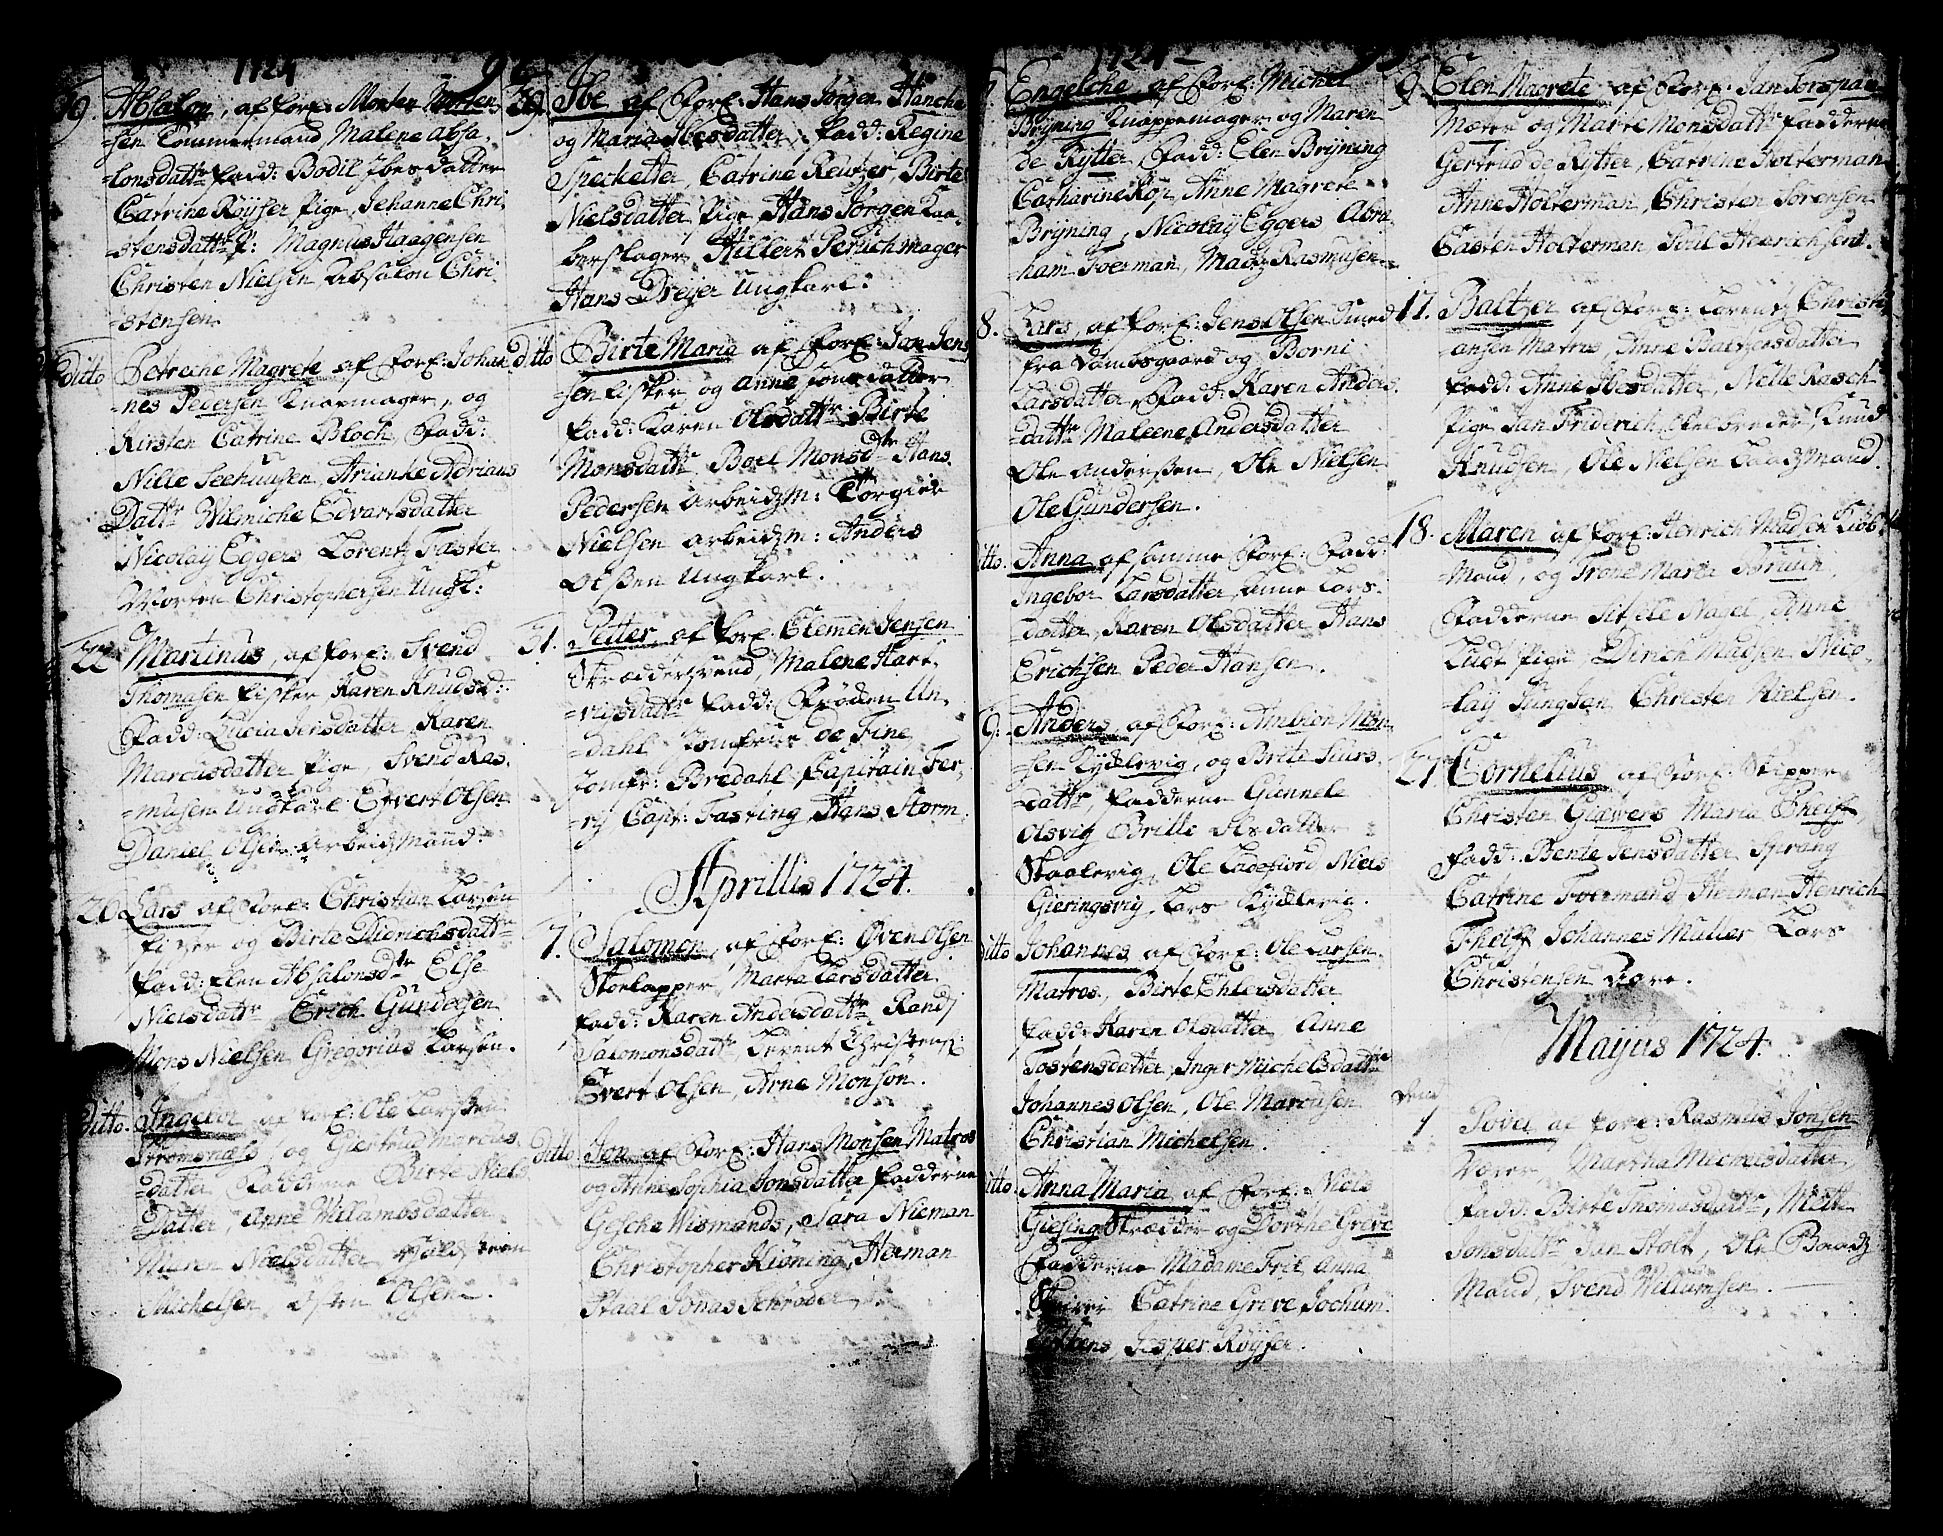 1724
19. Absalon, af Foræ: Morten Morten
=sen Tommermand, Malene absa,
=lonsdattr fadd: Bodil Ibesdatter
Catrine Röyser Pige, Jehanne Chri
=stensdattr P: Magnus Haagensen
Christen Nielsen Absalon Chri
=stensen
ditto Petreche Magrete af Foræ: Johan
=nes Pedersen Knapmager, og
Kirsten Catrine Bloch, Fadd:
Nille Seehuusen, Arianke Adrians
Dattr Wilmiche Edvartsdatter
Nicolay Eggers Lorentz Faster
Morten Christophersen Ungk:
22 Martinus, af foræ: Svend
Thomasen fisker Karen Knudsd:
Fadd: Lucia Jensdatter, Karen
Marcusdatter Pige, Svend Ras,
=musen Ungkarl Evert Olsen
Daniel Olsen Arbeidzmand:
26 Lars af Foræ: Christian Larsen
fisker og Birte Dierichsdattr
fadd: Elen Absalonsdtr Else
Nielsdattr Erich Gundersen
Mons Nielsen Gregorius Larsen.
Ditto. Ingebor af foræ: Ole Larsen
Strømsnæs, og Giertrud Marcus,
=datter Fadderne Birte Niels
=Datter, Anne Willumsdatter
Maren Nielsdatter,
Michelsen, Osten Olsen.
29. Ibe af Foræ: Hans Jörgen Hanche
og Maria Ibesdatter, fadd: Regine
Specketter, Catrine Reutzer, Birte
Nielsdatter Pige, Hans Jörgen Kaa-
berslager, Hillert Peruchmager
Hans Dreyer Ungkarl:
ditto Birte Maria af Foræ: Jon Jens
sen fisker og Anne Jonsdatter
fadd: Karen Olsdattr Birte
Monsdattr Boel Monsdtr Hans
Pedersen Arbeidzm: Torgier
Nielsen arbeidzm: Anders
Olsen Ungkarl.
31. Petter, af Foræ. Clemen Jensen
Skræddersvend, Malene Hart,
=vigsdattr fadd: Fröcken Un,
=dahl Jomfrue de Fine
Jomfr: Bredahl, Capitain Fer,
=ry Capt: Fasting Hans Storm,
Aprillis 1724.
7. Salomon, af Foræ: Oven Olsen
Skoelapper, Marta Larsdatter
fadd: Karen Andersdattr Randj
Salomonsdattr, Torent Christens:
Evert Olsen, Arne Monson.
ditto Jon af Foræ: Hans Monsen Matros
og Anne Sophia Jonsdatter fadderne
Gesche Wismands, Sara Nieman
Christopher Kiöning, Herman
Staal Jonas Schröder,
1724 -
Engelche, af Foræ: Michel
Bryning Knappemager og Maren
de Rytter, Fadd: Elen Bryning
Catharine Röp, Anne Magrete
Bryning, Nicolay Eggers Abra
=ham Foerman, Madz Rasmusen
8. Lars, af foræ: Jens Olsen Smed
fra Damsgaard og Borni
Larsdatter, Fadd: Karen Anders
=dattr Maleene Andersdatter
Ole Andersen, Ole Nielsen
Ole Gundersen.
ditto. Anna af samme Foræ: Fadd:
Ingebor Larsdatter, Anne Lars.
=datter, Karen Olsdatter Hans
Erichsen Peder Hansen.
9. Anders af Foræ: Ambion Mon
=sen Kydlevig, og Brite Siurs,
=dattr fadderne Gunnele
Olsvig Brille Ilsdatter
Staalevig, Ole Ladefiord Niels
Gieringsvig, Lars Kydlevig.
ditto Johannes af Foræ: Ole Larsen.
Matros, Birte Ehlersdatter
fadd: Karen Olsdatter Anne
Tostensdatter, Inger Michelsdattr
Johannes Olsen, Ole Marcusen
Christian Michelsen.
ditto Anna Maria af Foræ: Niels
Giesing Skrædder og Dorthe Greve
Fadderne Madame Frit, Anna
Catrine Greve, Jochum
Jesper Röyser.
9. Elen Magrete af Foræ: Jan Jorspan
Mæter og Marte Monsdattr fadderne
Gertrud de Rytter, Catrine Holterman
Anne Holterman, Christen Sörensen
Casten Holterman Poul Henrichsen.
17. Baltzer af Foræ: Lorentz Christi
ansen Matros, Anne Baltzersdatter
fadd: Anne Ibesdatter, Nelle Rasch
Pige Jan Friderich, Knud
Knudsen, Ole Nielsen Baadzmand.
18. Maren af Foræ: Henrich Mad en Kiøb
=Mand, og Trone Marta Bruun
Fadderne Sitsele Nagel, Anne
Ludt Pige Dirich Madsen, Nico,
lay Jungsen Christen Nielsen.
27 Cornelius af Foræ: Skipper
Christen Giævers Maria Theiff,
fadd: Bente Jensdatter Sprang
Catrine Foermand, Herman Henrich
Theiff Johannes Müller Lars
Christensen Fore.
Mayus 1724.
Povel af foræ: Rasmus Jonsen
Væver, Martha Meinersdatter
fadd: Birte Thomasdattr, Mette
Jonsdattr Jan Stolt, Ole Baadz
Mand, Svend Willumsen.